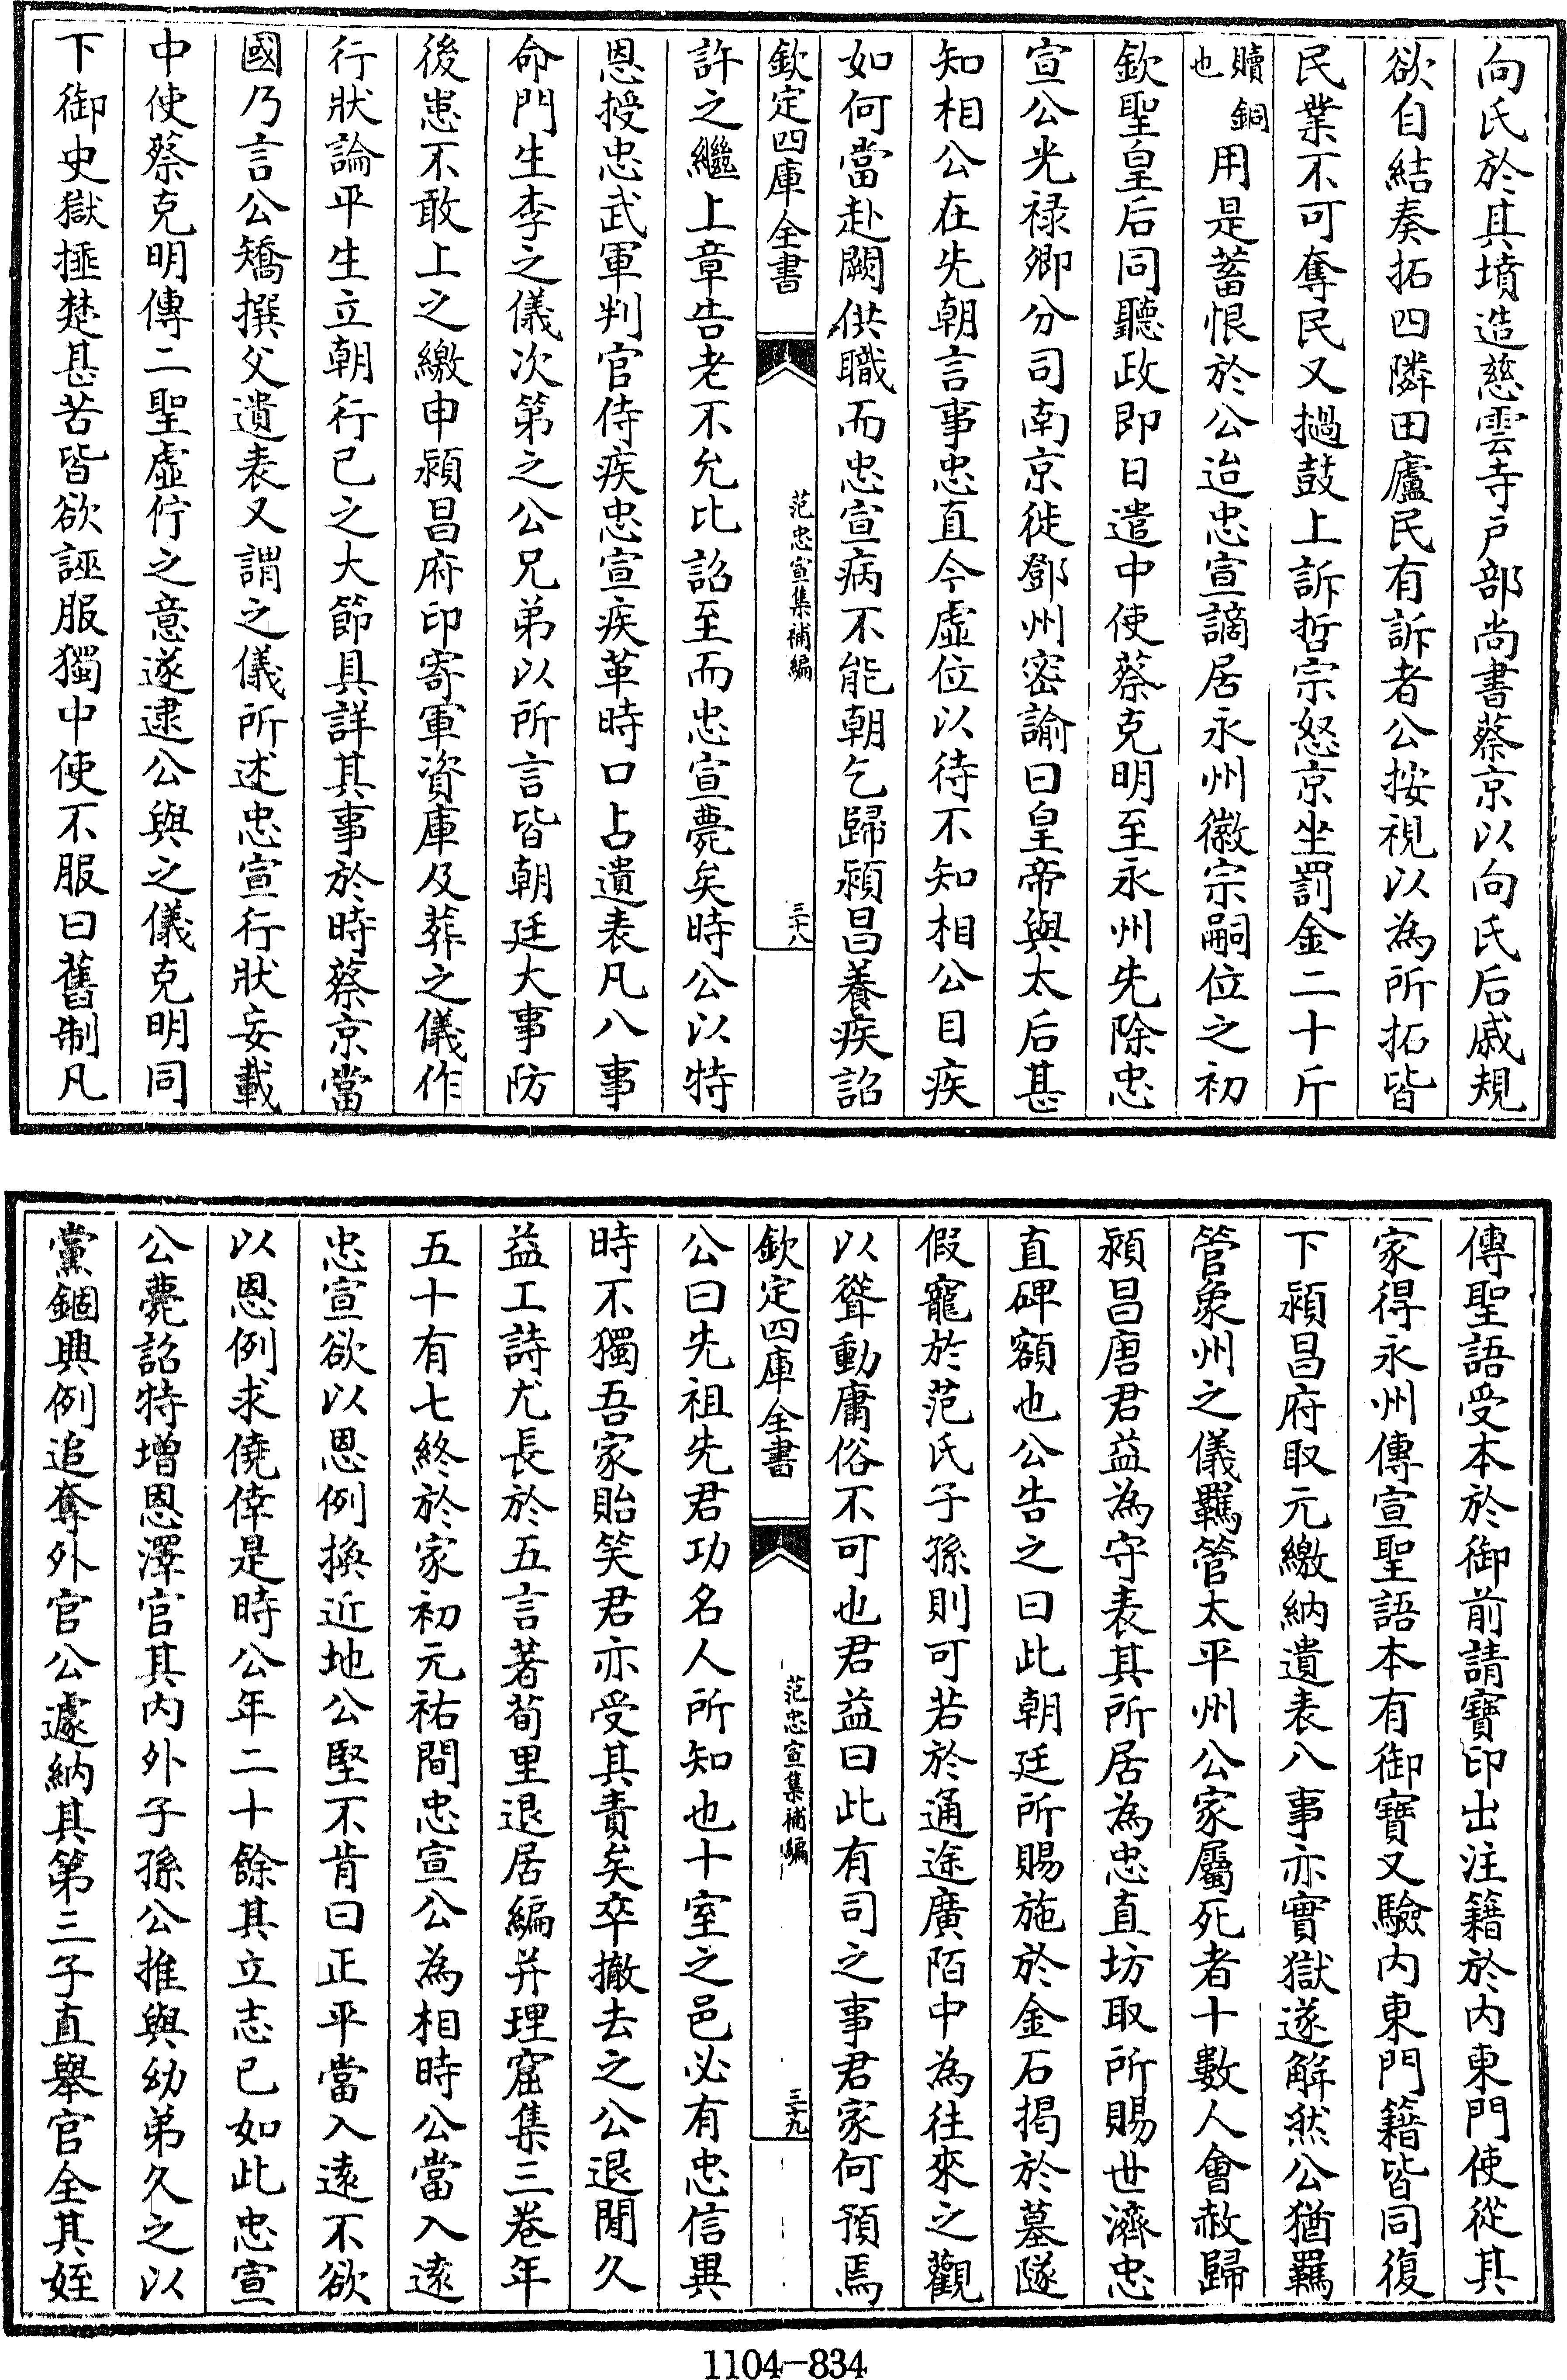 向氏於其墳造慈雲寺戶部尚書蔡京以向氏后戚規
欲自結奏拓四隣田廬民有訴者公按視以為所拓皆
民業不可奪民又撾鼓上訴哲宗怒京坐罰金二十斤
贖銅也用是蓄恨於公迨忠宣謫居永州徽宗嗣位之初
欽聖皇后同聽政即日遣中使蔡克明至永州先除忠
宣公光祿卿分司南京徙鄧州密諭曰皇帝與太后甚
知相公在先朝言事忠直今虛位以待不知相公目疾
如何當赴闕供職而忠宣病不能朝乞歸潁昌養疾詔
欽定四庫全書
范忠宣集補編
三十八
許之繼上章告老不允比詔至而忠宣薨矣時公以特
恩授忠武軍判官侍疾忠宣疾革時口占遺表凡八事
命門生李之儀次第之公兄弟以所言皆朝廷大事防
後患不敢上之繳申潁昌府印寄軍資庫及葬之儀作
行狀論平生立朝行己之大節具詳其事於時蔡京當
國乃言公矯撰父遺表又謂之儀所述忠宣行狀妄載
中使蔡克明傳二聖虛佇之意遂逮公與之儀克明同
下御史獄捶楚甚苦皆欲誣服獨中使不服曰舊制凡
傳聖語受本於御前請寶印出注籍於內東門使從其
家得永州傳宣聖語本有御寶又驗內東門籍皆同復
下潁昌府取元繳納遺表八事亦實獄遂解然公猶羈
管象州之儀羈管太平州公家屬死者十數人會赦歸
潁昌唐君益為守表其所居為忠直坊取所賜世濟忠
直碑額也公告之曰此朝廷所賜施於金石揭於墓隧
假寵於范氏子孫則可若於通途廣陌中為往來之觀
以聳動庸俗不可也君益曰此有司之事君家何預焉
欽定四庫全書
范忠宣集補編
三十九
公曰先祖先君功名人所知也十室之邑必有忠信異
時不獨吾家貽笑君亦受其責矣卒撤去之公退閒久
益工詩尤長於五言著荀里退居編并理窟集三卷年
五十有七終於家初元祐間忠宣公為相時公當入遠
忠宣欲以恩例換近地公堅不肯曰正平當入遠不欲
以恩例求僥倖是時公年二十餘其立志已如此忠宣
公薨詔特增恩澤官其內外子孫公推與幼弟久之以
黨錮興例追奪外官公遽納其第三子直舉官全其姪
1104-834